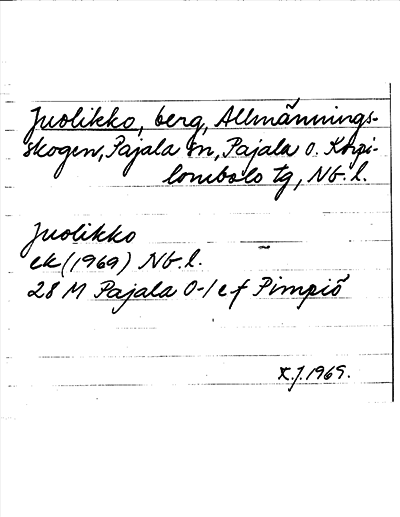 Juolikko, berg, Allmännings-
skogen, Pajala sn, Pajala o. Korpi-
lombolo tg, Nb. l.
Juolikko
ek (1969) Nb. l.
28 M Pajala 0-1 e f Pimpiö
X.J. 1969.